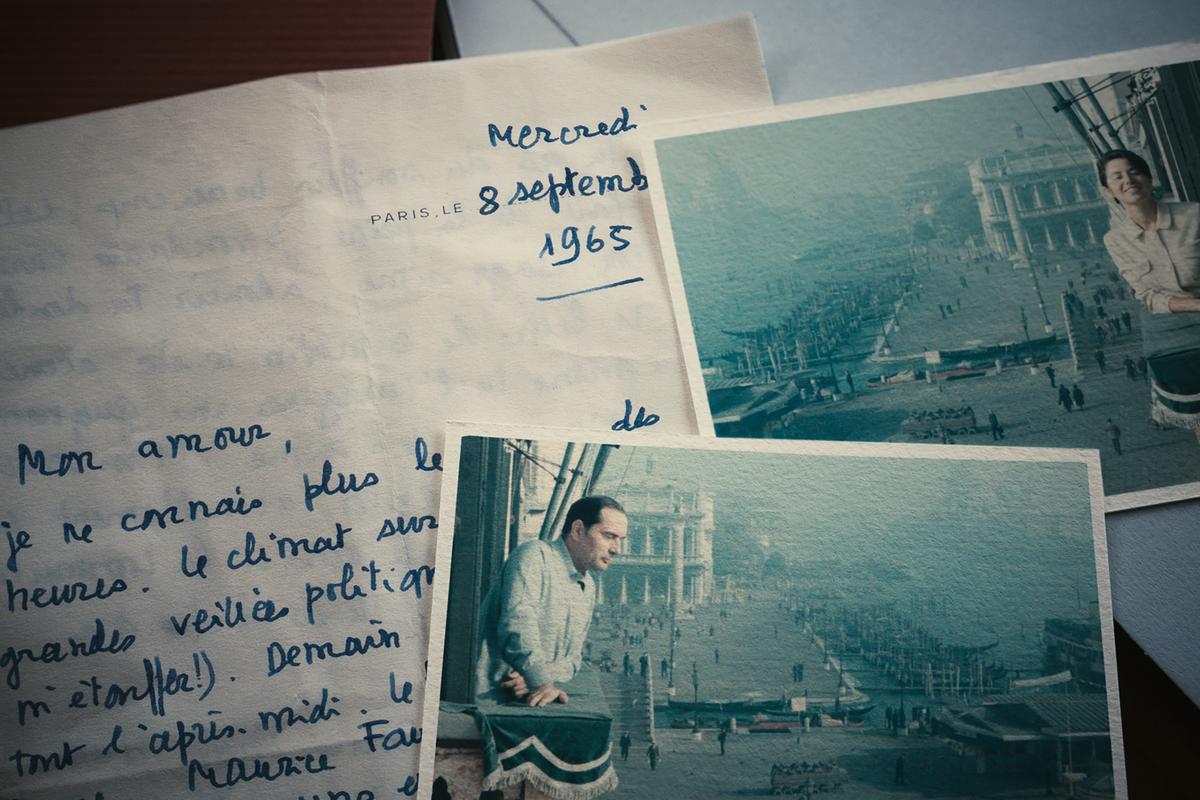 Mercredi
PARIS, LE 8 septemb
1965
des
Mon amour,
je ne connais plus le
heures. Le climat sur
grandes veillées politiq
m'étouffer!). Demain
tout l'après-midi. Le
Maurice Fau